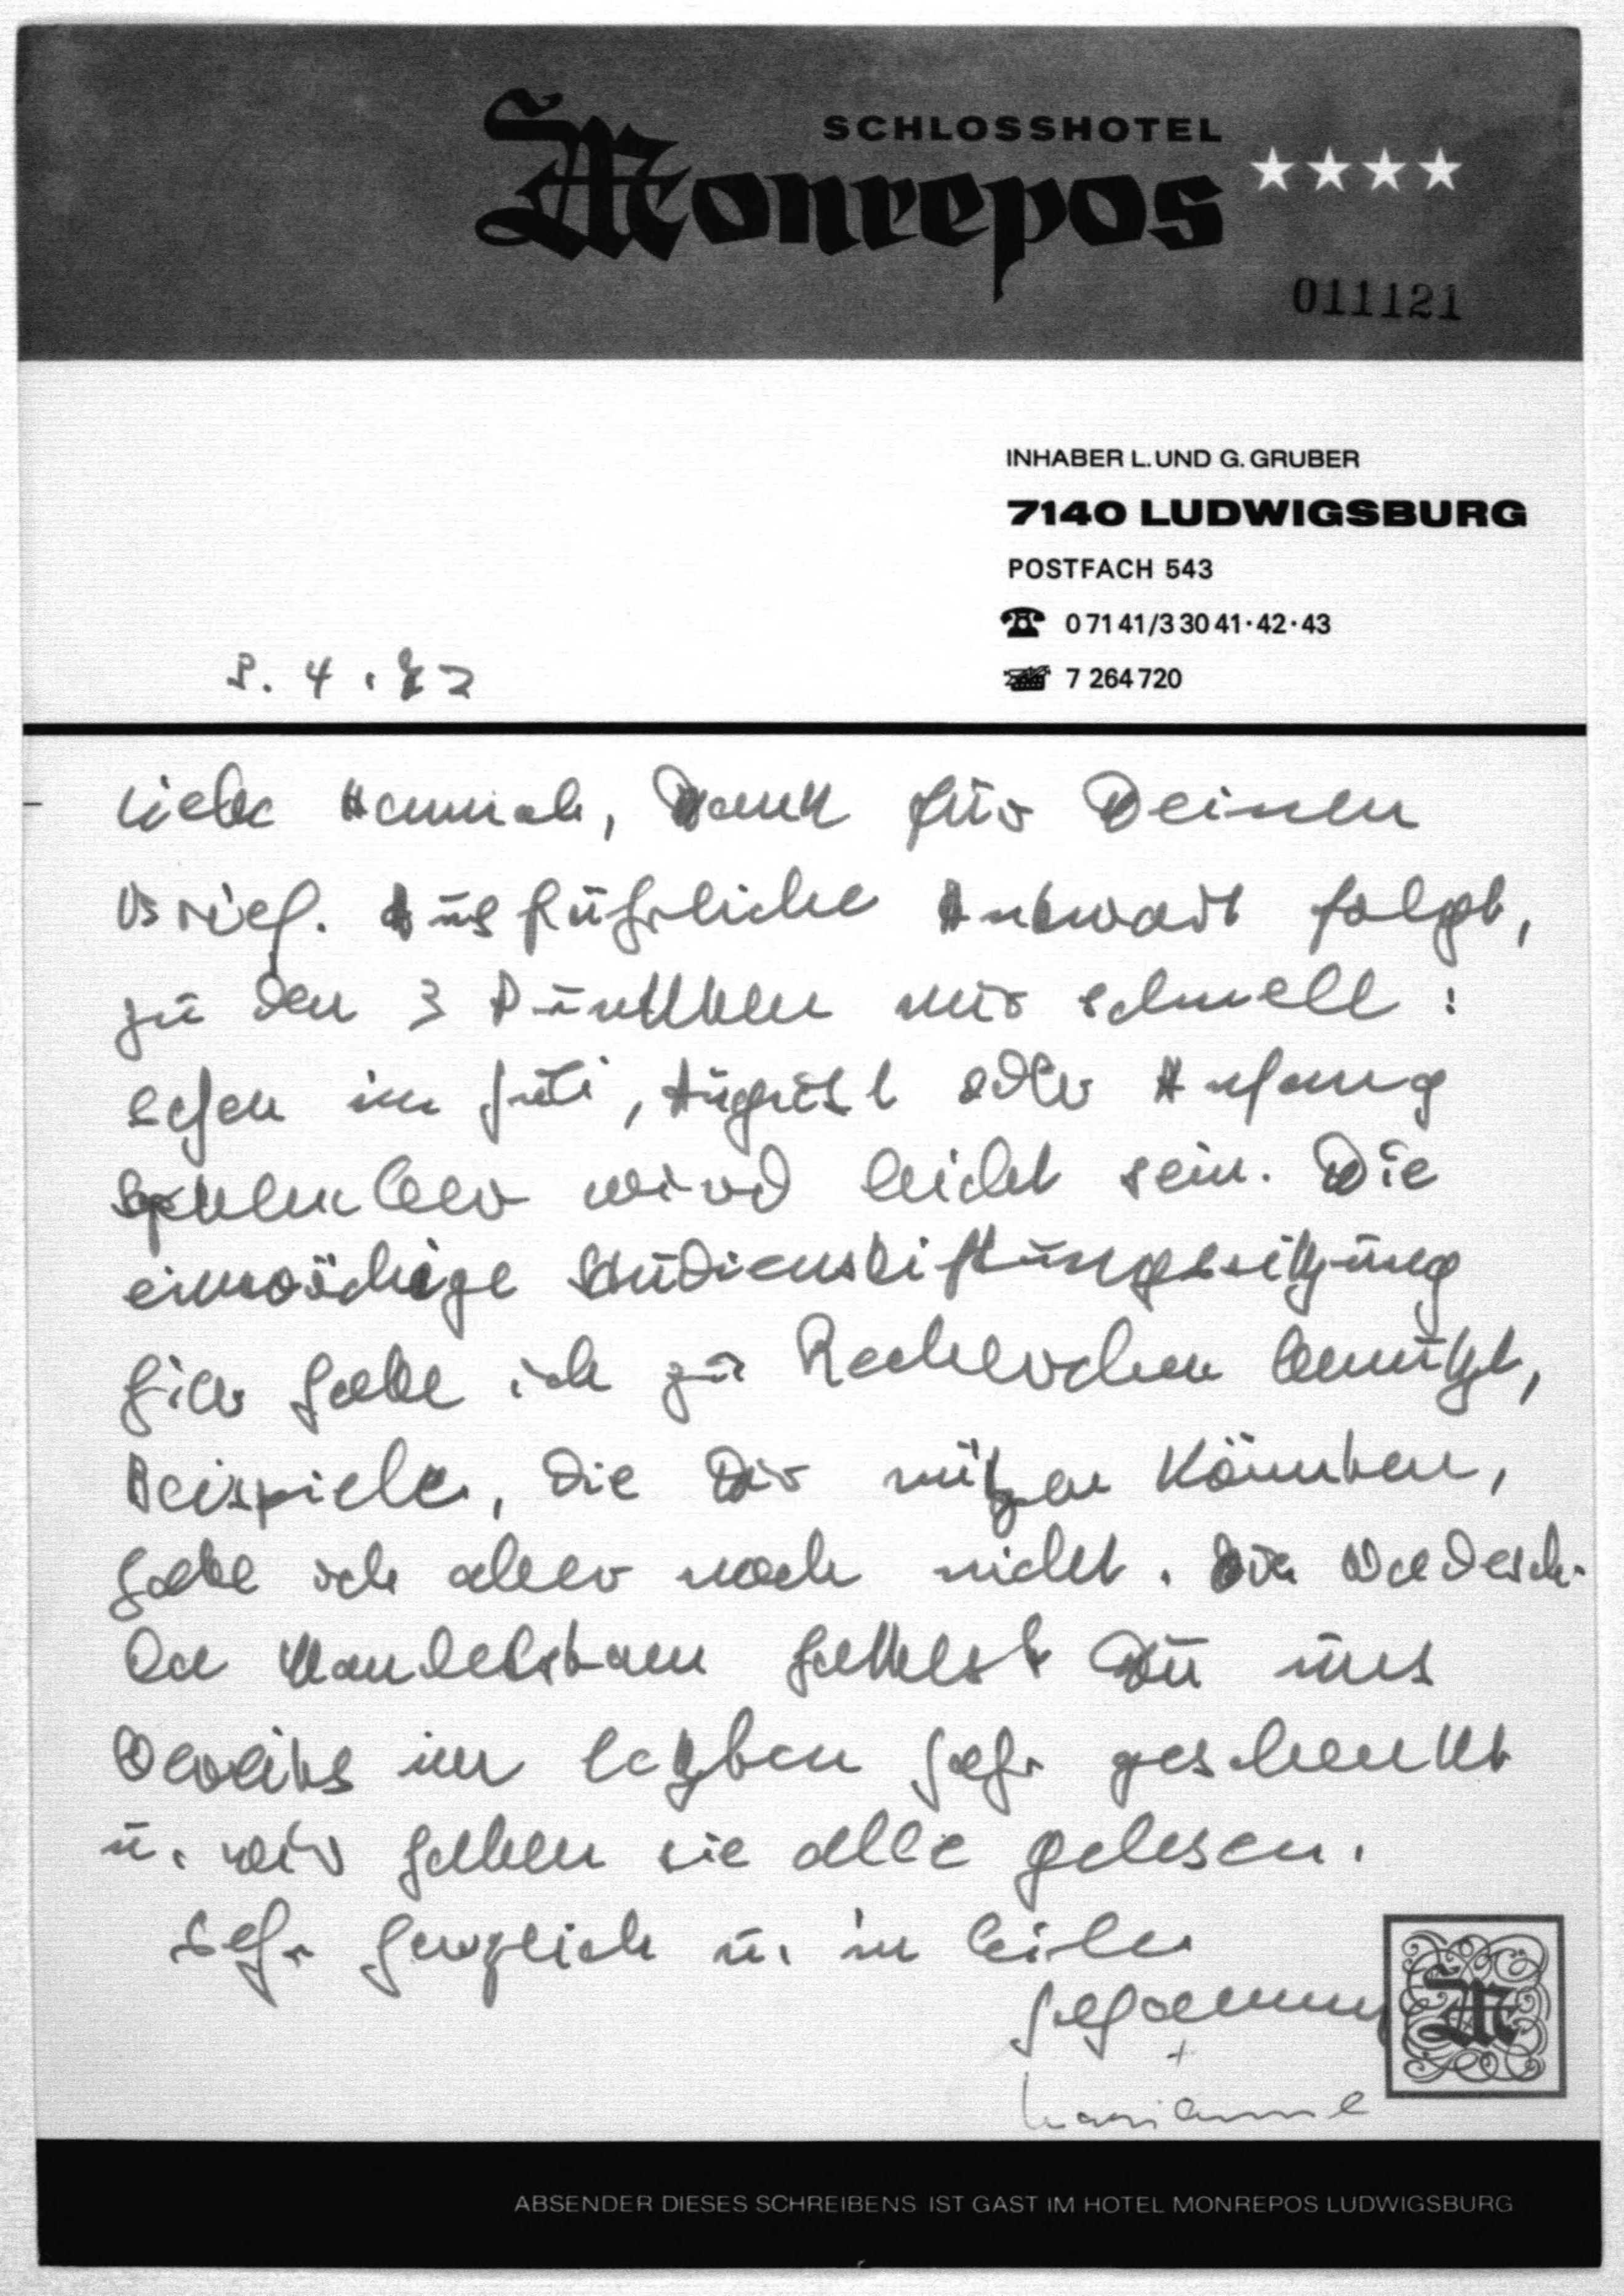 SCHLOSSHOTEL
Monrepos
011121
INHABER L. UND G. GRUBER
7140 LUDWIGSBURG
POSTFACH 543
0 71 41/3 30 41·42·43
7 264 720
8. 4. 72
Liebe Hannah, Dank für Deinen
Brief. Ausführliche Antwort folgt,
zu den 3 Punkten nur schnell:
Sehen im Juli, August oder Anfang
September wird leicht sein. Die
einwöchige Studienstiftungssitzung
hier habe ich zu Recherchen benützt,
Beispiele, die Dir nützen könnten,
habe ich aber noch nicht. Die Nadesch-
da Mandelstam hattest Du uns
bereits im letzten Jahr geschenkt
u. wir haben sie alle gelesen.
Sehr herzlich u. in Eile
+
Marianne
M
ABSENDER DIESES SCHREIBENS IST GAST IM HOTEL MONREPOS LUDWIGSBURG